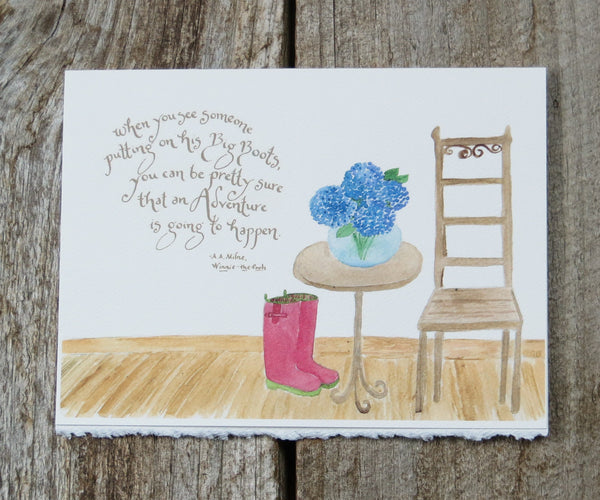 when you see someone
putting on his Big Boots,
you can be pretty sure
that an Adventure
is going to happen.
-A.A. Milne,
Winnie-the-Pooh